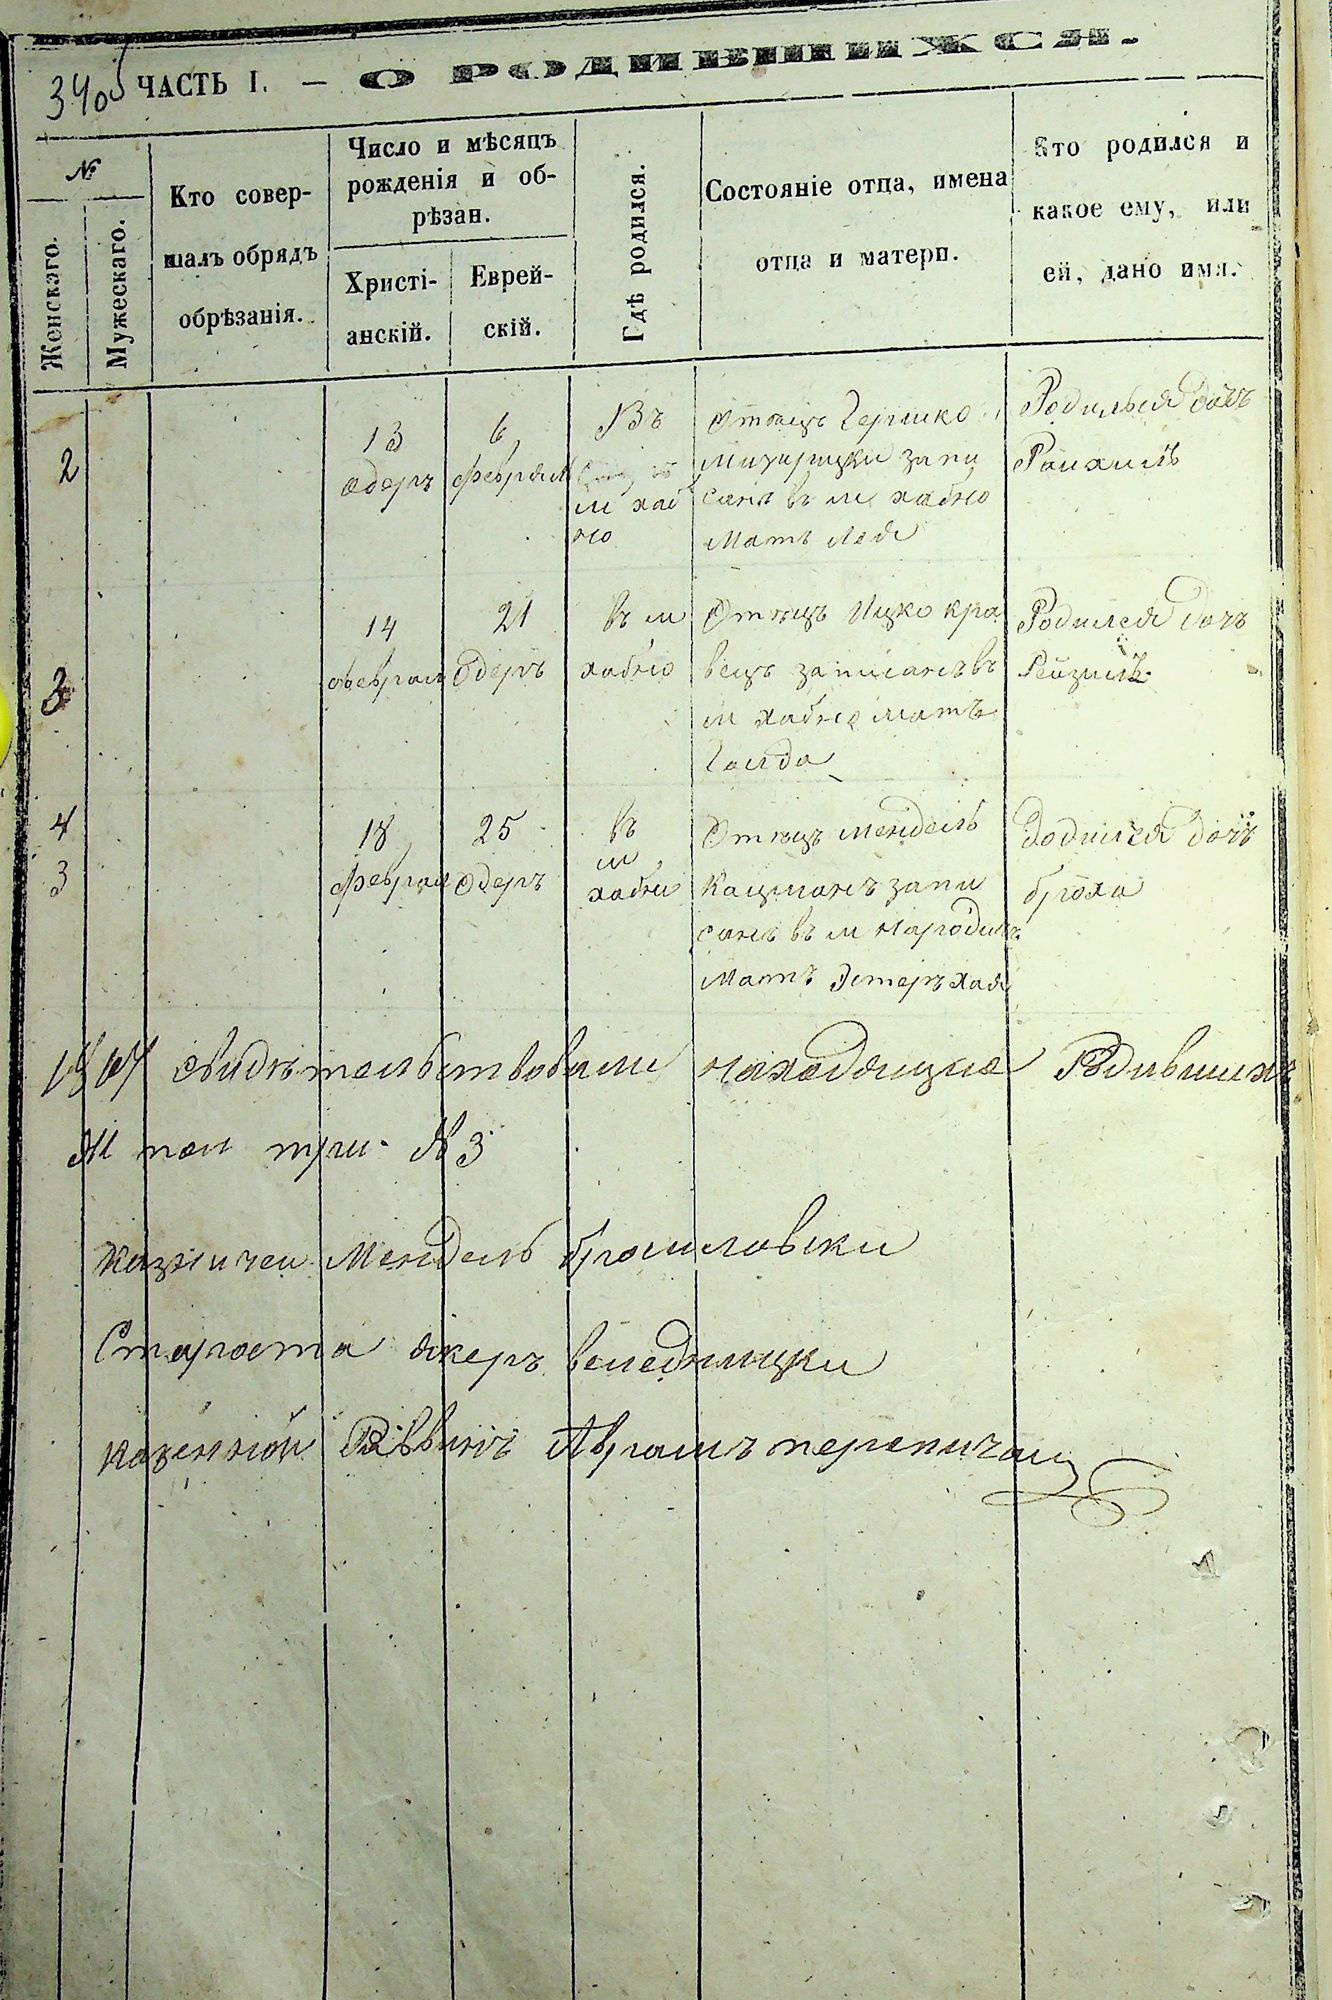 340
ЧАСТЬ I. — О РОДИВШИХСЯ.
№
Женскаго.
Мужескаго.
Кто совер-
шалъ обрядъ
обрѣзанія.
Число и мѣсяцъ
рожденія и об-
рѣзан.
Христі-
анскій.
Еврей-
скій.
Гдѣ родился.
Состояніе отца, имена
отца и матери.
Кто родился и
какое ему, или
ей, дано имя.
2
13
адеръ
6
февраля
Въ
м хаб
но
Отецъ Гершко
запи
санъ в м хабно
Мать Лея
Родилься дочъ
Рохиль
3
14
февраля
21
Одеръ
въ м
хабно
Отецъ Ицко кра
вецъ записанъ въ
м хабно матъ
Голда
Родился дочъ
Рейзиль
4
3
18
февраля
25
Одеръ
въ
м
хабни
Отецъ мендель
Кацманъ запи
санъ въ м народичъ
Матъ Эстеръ хая
Родился дочъ
броха
свидѣтельствовали находящие Родившихъ
три № 3
казничеи Мендель браиловски
Староста
казенной Раввинъ Аврамъ перепичаи